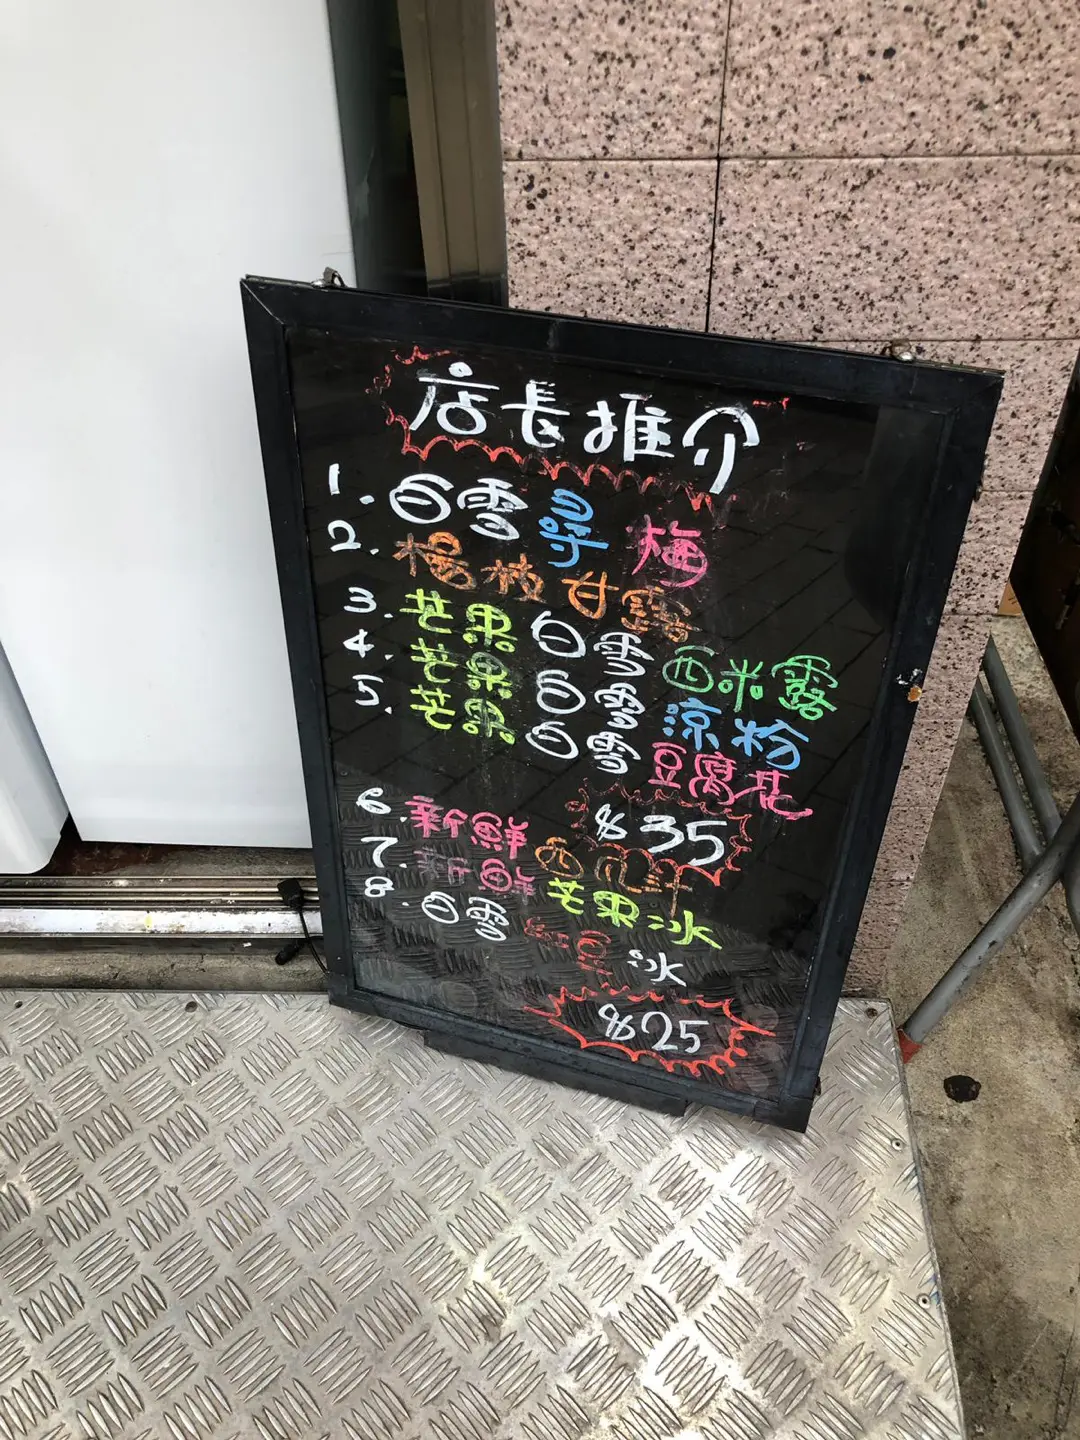 店長推介
1. 白雪尋梅
2. 楊枝甘露
3. 芒果白雪西米露
4. 芒果白雪涼粉
5. 芒果白雪豆腐花
$35
6. 新鮮西瓜汁
7. 新鮮芒果冰
8. 白雪紅豆冰
$25